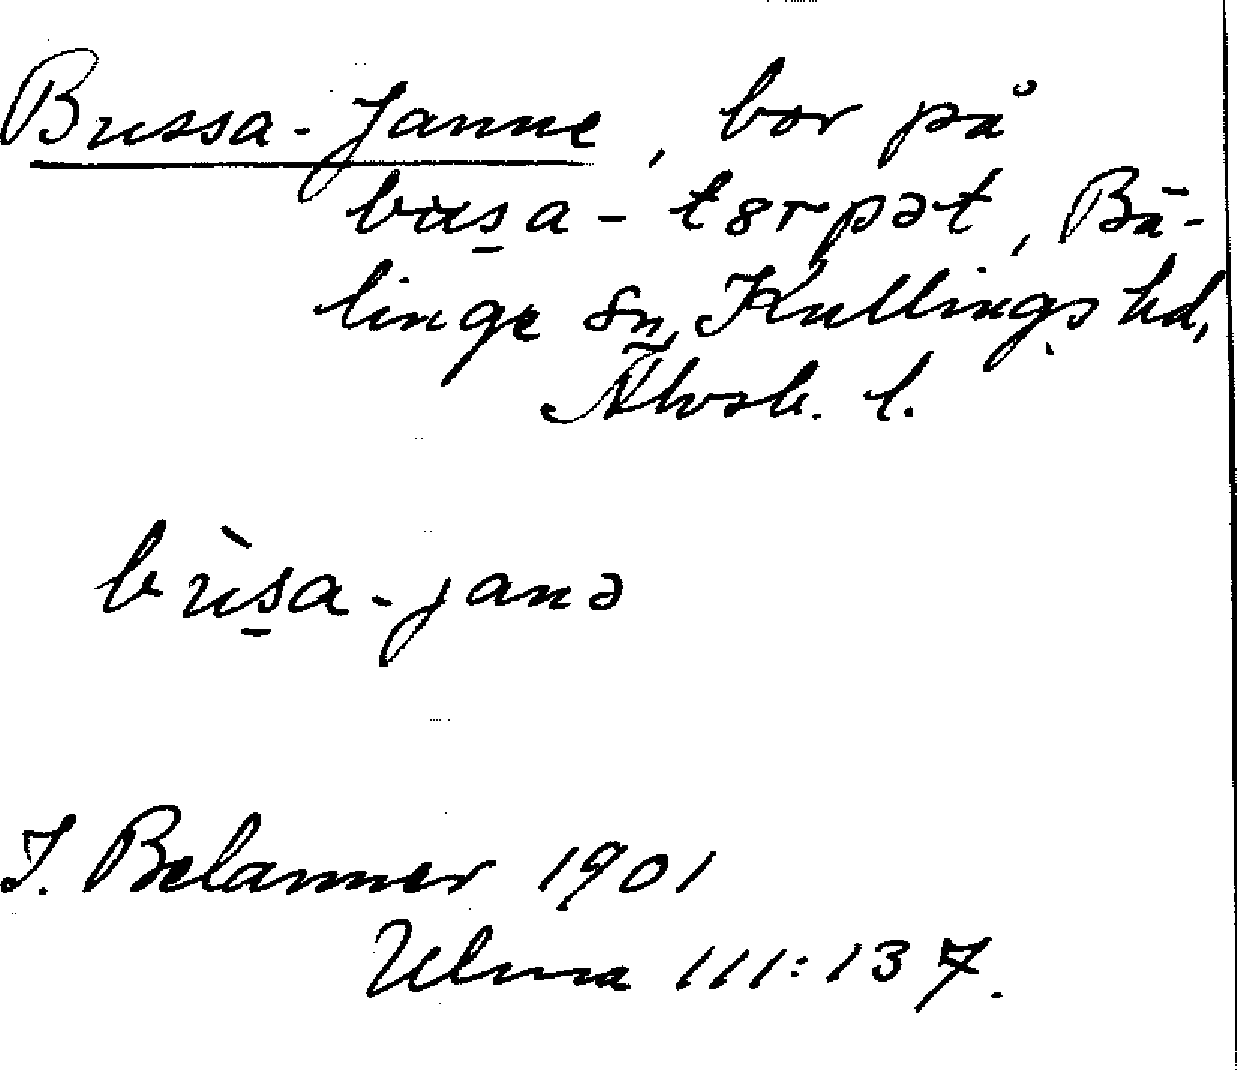 Bussa-Janne, bor på
bus̠a-t8rpət, Bä-
linge sn, Kullings hd,
Älvsb. l.
bùs̠a-janə
J. Belanner 1901
Ulma 111:137.